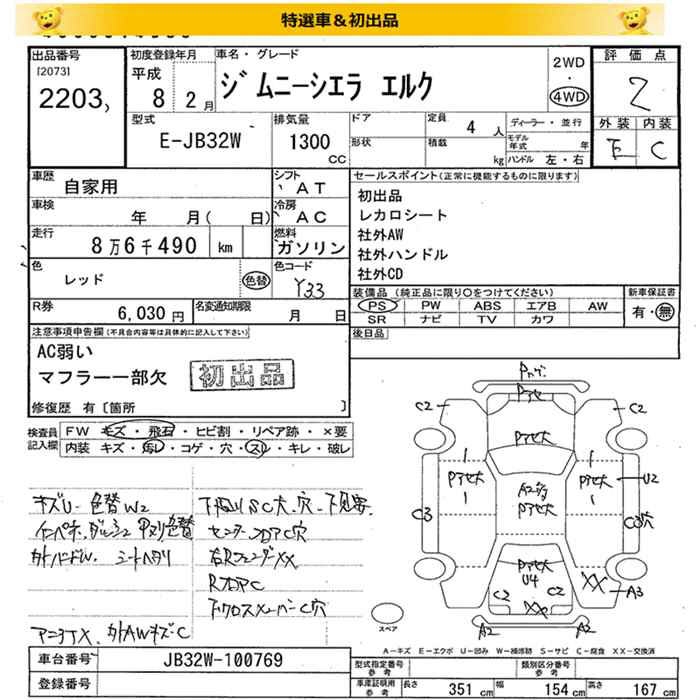 特選車＆初出品
出品番号
[2073]
2203
初度登録年月
平成
8 2月
車名・グレード
ジムニーシエラ エルク
2WD
・
4WD
評価点
2
外装 内装
E C
型式
E-JB32W
排気量
1300
CC
ドア
形状
定員
4 人
積載
kg
ディーラー・並行
モデル年式 年
ハンドル 左・右
車歴
自家用
シフト
AT
車検
年 月( 日)
冷房
AC
走行
8万6千490 km
燃料
ガソリン
色
レッド
色替
色コード
Y33
R券
6,030 円
名変通知期限
月 日
セールスポイント(正常に機能するものに限ります)
初出品
レカロシート
社外AW
社外ハンドル
社外CD
装備品 (純正品に限り○をつけてください)
PS PW ABS エアB AW
SR ナビ TV カワ
新車保証書
有・無
後日品
注意事項申告欄(不具合内容等は具体的に記入して下さい)
AC弱い
マフラー一部欠
初出品
修復歴 有 [箇所 ]
検査員
記入欄
FW キズ・飛石・ヒビ割・リペア跡・×要
内装 キズ・汚レ・コゲ・穴・スレ・キレ・破レ
キズU 色替W2
インパネ、ダッシュ
シートヘタリ
アンテナX、外AWキズ・C
下廻りSC大、穴
センターフロアC穴
右RフェンダーXX
RフロアC
下クロスメンバーC穴
C2
C2
アセ大
アセ大
アセ大
A2
アセ大
U2
C3
C3穴
アセ大
U4
C2
C2
XX
XX
A3
A2
A2
スペア
A－キズ E－エクボ U－凹み W－補修跡 S－サビ C－腐食 XX－交換済
車台番号
JB32W-100769
登録番号
型式指定番号
参考
類別区分番号
参考
車庫証明用
参考
長さ 351 cm
幅 154 cm
高さ 167 cm